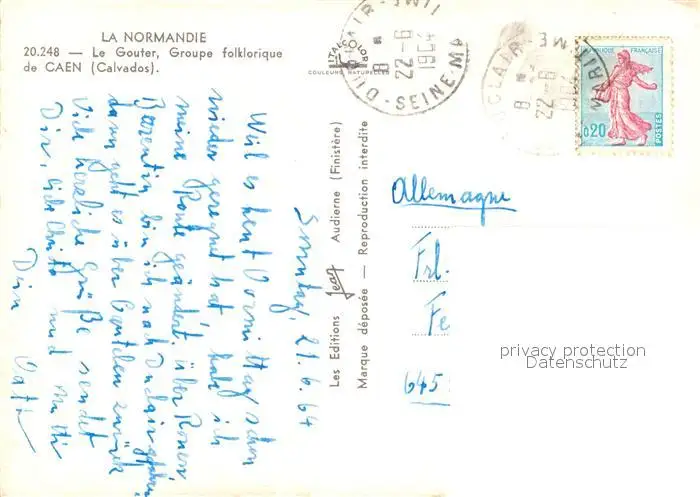 LA NORMANDIE
20.248 — Le Gouter, Groupe folklorique
de CAEN (Calvados).
COULEURS NATURELLES
Sonntag, 21.6.64
Weil es heut Vormittag schon
wieder geregnet hat, hab ich
meine Route geändert. über Rouen
Barentin bin ich nach Duclair gefahren
dann geht es über zurück
Viele herzliche Grüße sendet
Dir, liebe und Mutti
Dein Vater
Les Editions Jean Audierne (Finistère)
Marque déposée — Reproduction interdite
DUCLAIR
SEINE-MARITIME
8 H
22-6
1964
8 H
22-6
1964
REPUBLIQUE FRANÇAISE
0,20
POSTES
Allemagne
Frl.
Fe
645
privacy protection
Datenschutz